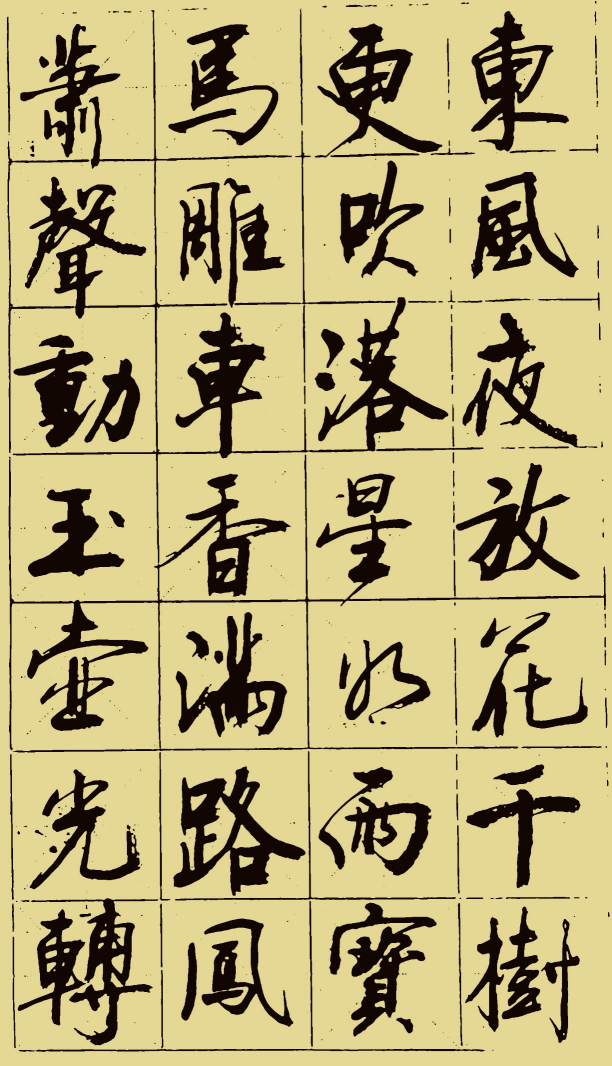 東風夜放花千樹
更吹落星如雨寶
馬雕車香滿路鳳
蕭聲動玉壺光轉